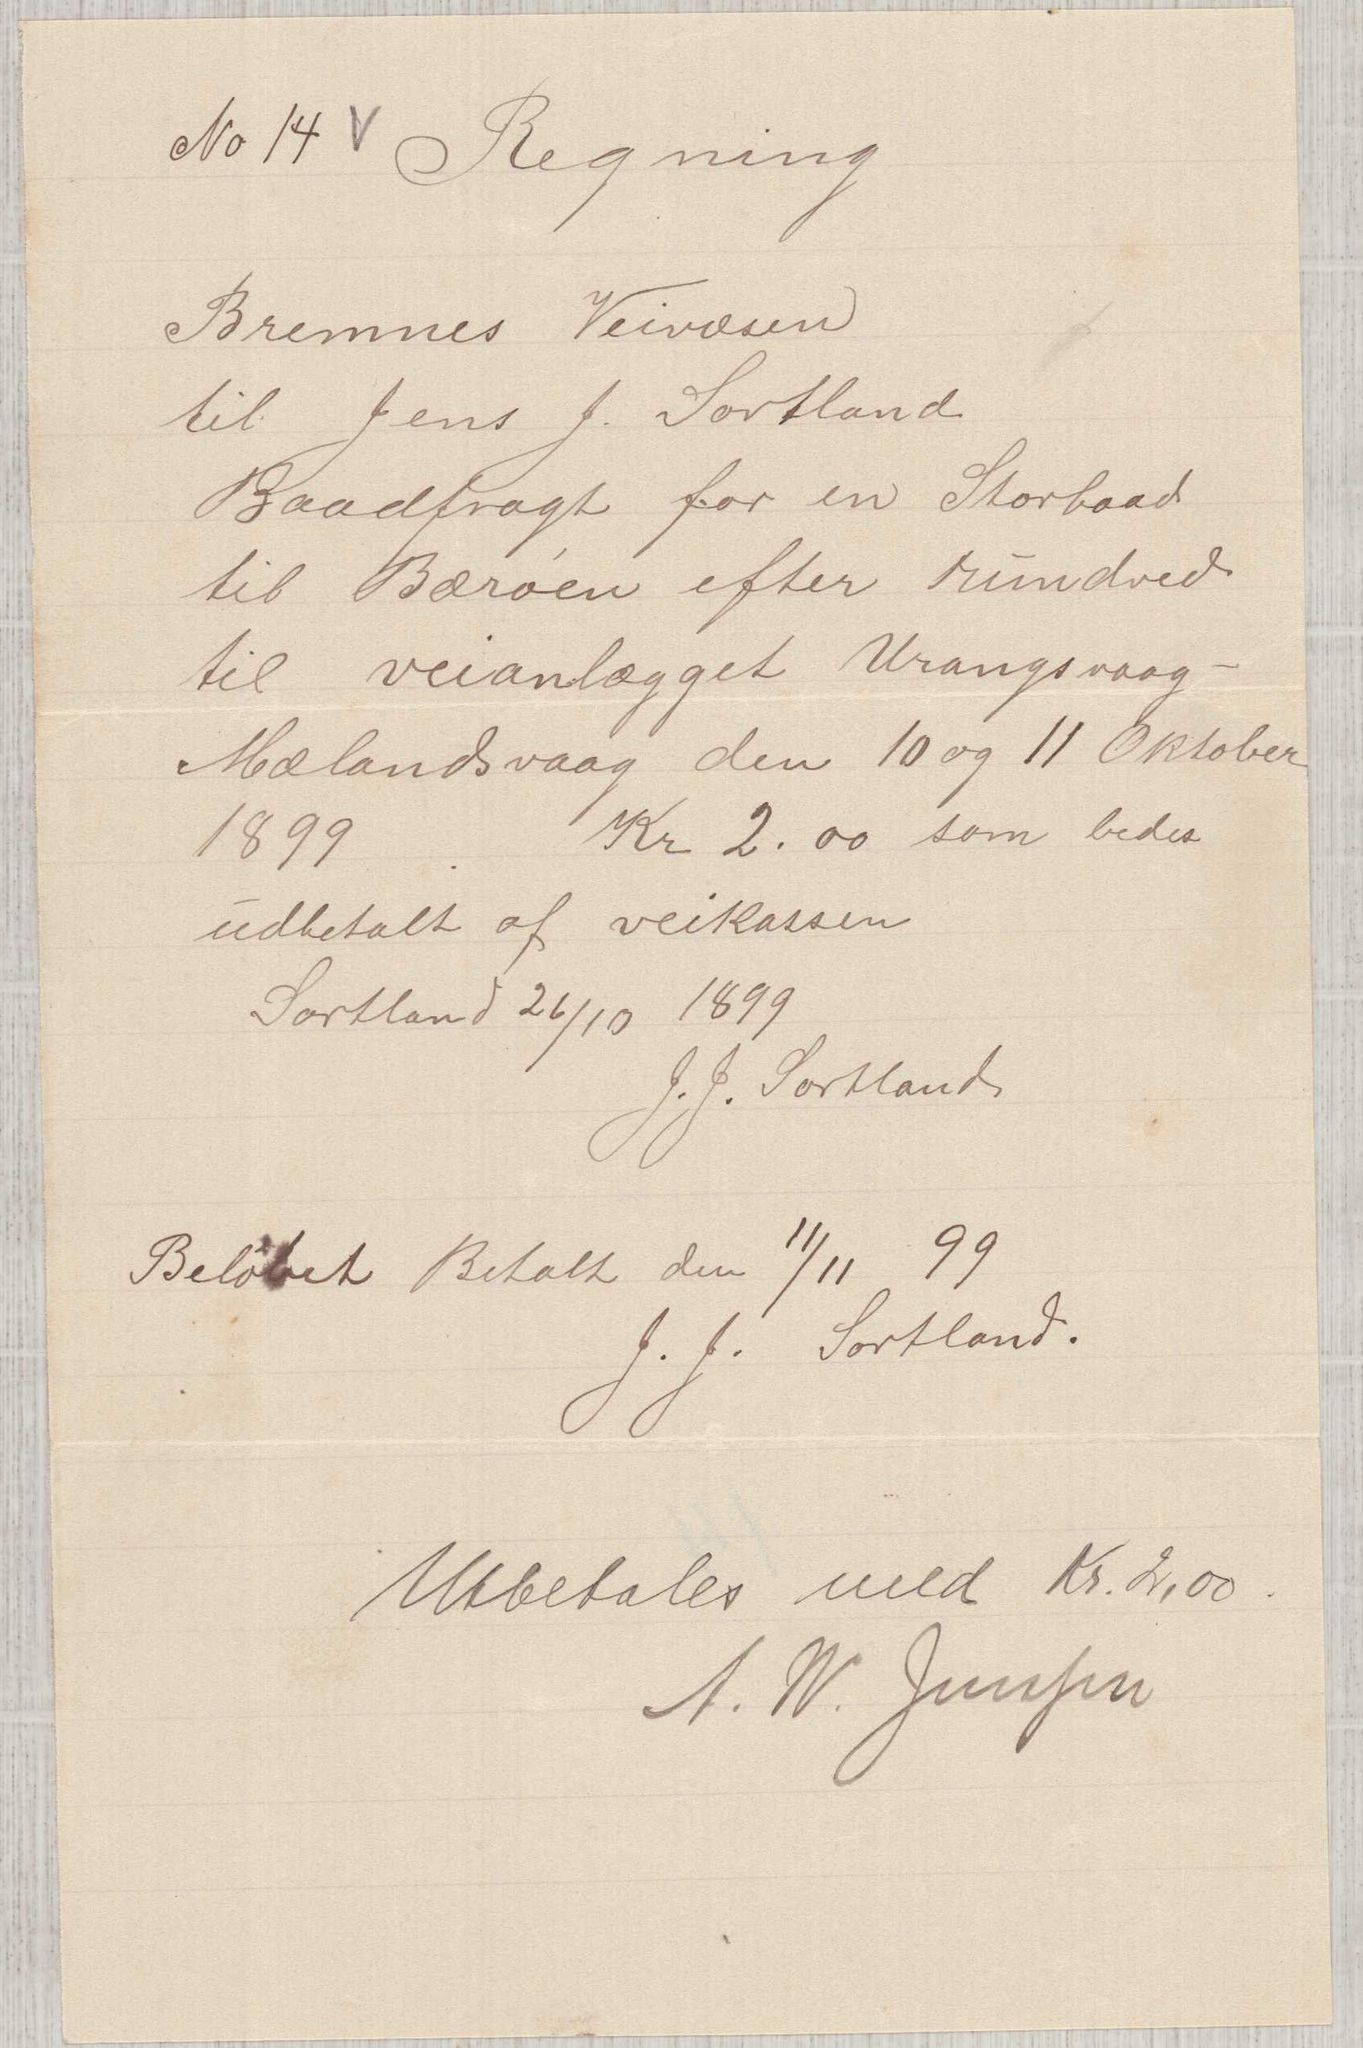 No 14 V Regning
Bremnes Veivæsen
til Jens J. Sortland
Baadfragt for en Storbaad
til Bærøen efter rundved
til veianlægget Urangsvaag-
Mælandsvaag den 10 og 11 Oktober
1899 Kr 2.00 som bedes
udbetalt af veikassen
Sortland 26/10 1899
J. J. Sortland
Beløbet Betalt den 11/11 99
J. J. Sortland.
Utbetales med Kr. 2,00.
A. W. Jensen